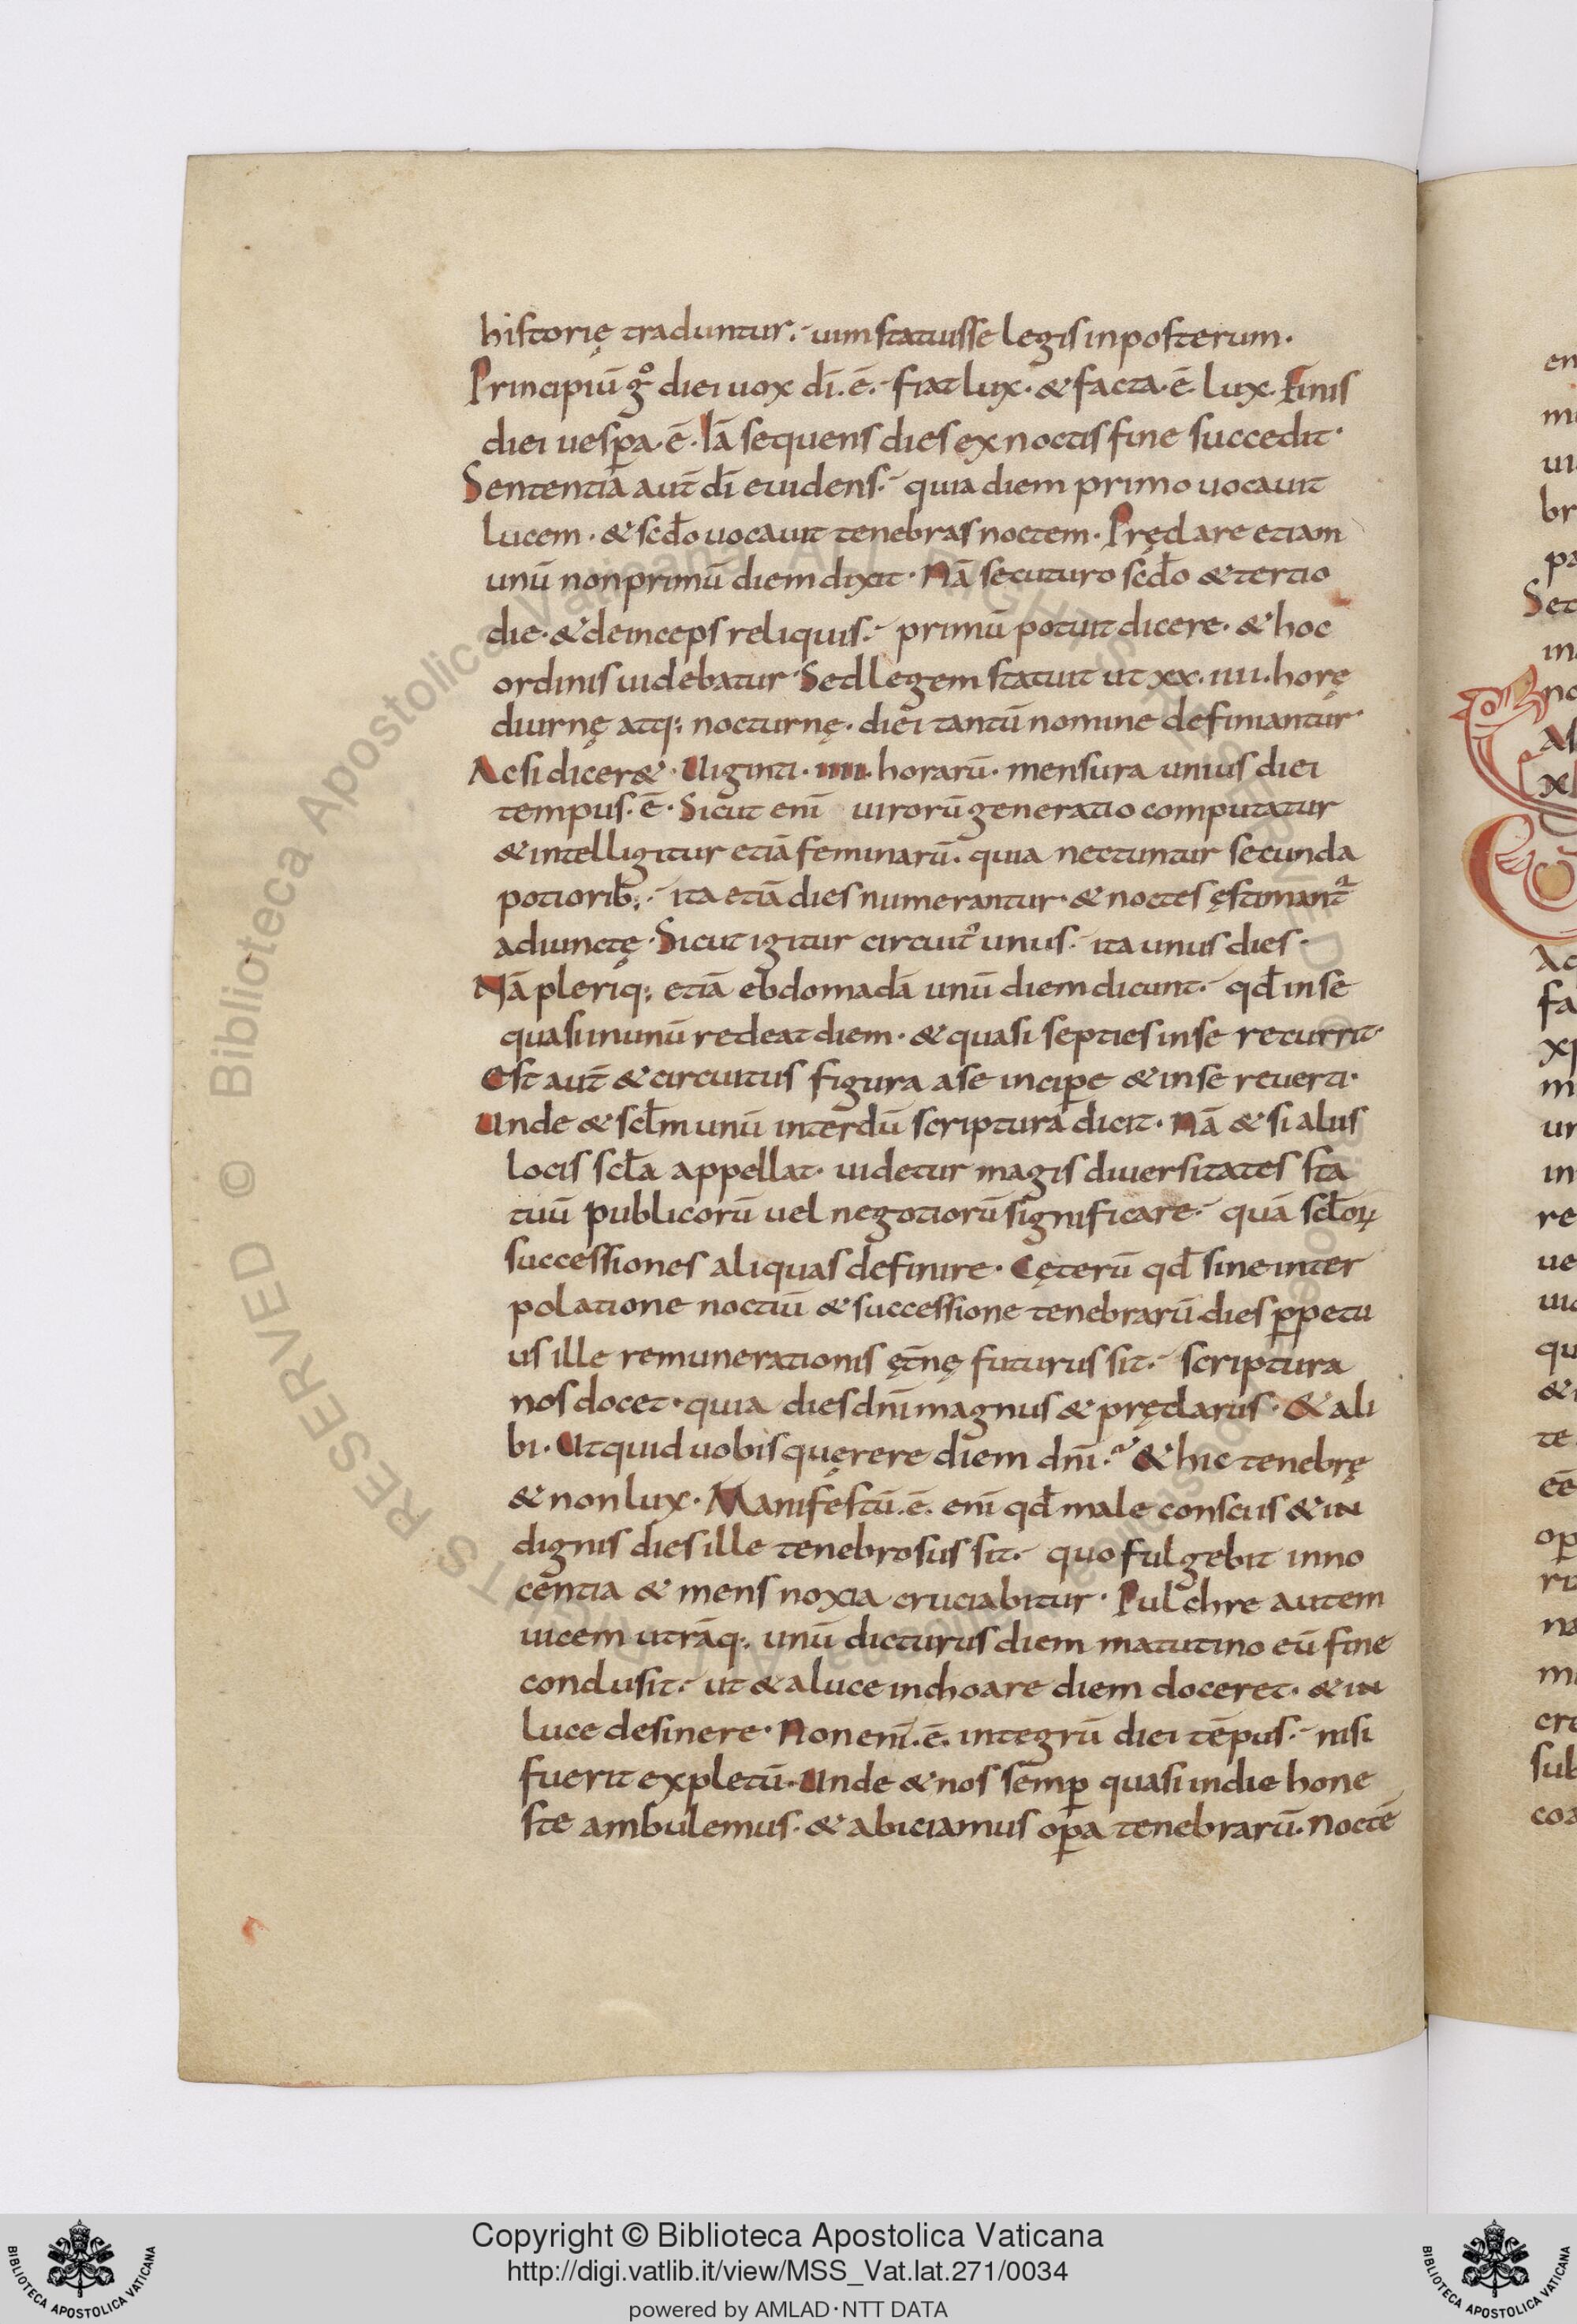 historię traduntur. uim statuisse legis in posterum.
Principiū gº diei uox dī. ē. fiat lux. & facta. ē. lux. Finis
diei uespa. ē. Iā sequens dies ex noctis fine succedit.
Sententia aut̄ dī euidens. quia diem primo uocauit
lucem. & scdo uocauit tenebras noctem. Pręclare etiam
unū non primū diem dixit. Nā secuturo scdo & tertio
die. & deinceps reliquis. primū potuit dicere. & hoc
ordinis uidebatur. Sed legem statuit ut xx. iiii. horę
diurnę atq; nocturnę. diei tantū nomine definiantur.
Ac si dicer&. Uiginti. iiii. horarū. mensura unius diei
tempus. ē. Sicut enī uirorū generatio computatur
& intelligitur etiā feminarū. quia nectuntur secunda
potiorib; ita etiā dies numerantur. & noctes ęstimant
adiunctę. Sicut igitur circuit unus. ita unus dies.
Nā pleriq; etiā ebdomadā unū diem dicunt. qđ in se
quasi in unū redeat diem. & quasi septies in se recurrit.
Est aut̄ & circuitus figura a se incipe & in se reuerti.
Unde & sclm unū interdū scriptura dicit. Nā & si aliis
locis scla appellat. uidetur magis diuersitates sta
tuū publicorū uel negotiorū significare. quā scloꝝ
successiones aliquas definire. Cęterū qđ sine inter
polatione noctiū & successione tenebrarū dies ppetu
us ille remunerationis ęt̄nę futurus sit. scriptura
nos docet. quia dies dnī magnus & pręclarus. & ali
bi. Ut quid uobis quęrere diem dnī. & hic tenebrę
& non lux. Manifestū. ē. enī qđ male consciis & in
dignis dies ille tenebrosus sit. quo fulgebit inno
centia & mens noxia cruciabitur. Pulchre autem
uicem utrāq; unū dicturus diem matutino eū fine
conclusit. ut & a luce inchoare diem doceret. & in
luce desinere. Non enī. ē. integrū diei tēpus. nisi
fuerit expletū. Unde & nos semp quasi in die hone
ste ambulemus. & abiciamus opa tenebrarū. Noctē
en
mi
ui
br
pa
Set
in
no
As
xl
Ac
fa
xp
m
un
in
re
ue
uic
qu
&
te
eē
op
ri
na
mi
cre
sub
coa
© Biblioteca Apostolica Vaticana ALL RIGHTS RESERVED
Copyright © Biblioteca Apostolica Vaticana
http://digi.vatlib.it/view/MSS_Vat.lat.271/0034
powered by AMLAD·NTT DATA
BIBLIOTECA APOSTOLICA VATICANA
BIBLIOTECA APOSTOLICA VATICANA